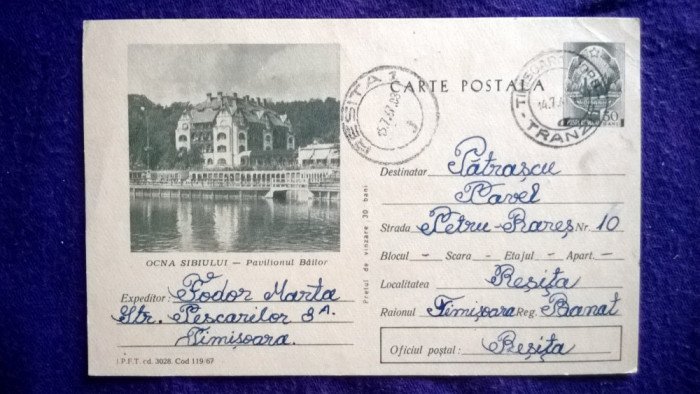 CARTE POSTALA
REȘIȚA 1
15.7.67.08
TIMIȘOARA
14.7.6
TRANZ
50
OCNA SIBIULUI — Pavilionul Băilor
Expeditor: Fodor Marta
Str. Pescarilor 3A.
Timișoara.
I.P.F.T. cd. 3028. Cod 119/67
Prețul de vinzare 30 bani
Destinatar Pătrașcu
Pavel
Strada Petru-Rareș Nr. 10
Blocul - Scara - Etajul - Apart -
Localitatea Reșița
Raionul Timișoara Reg. Banat
Oficiul poștal: Reșița